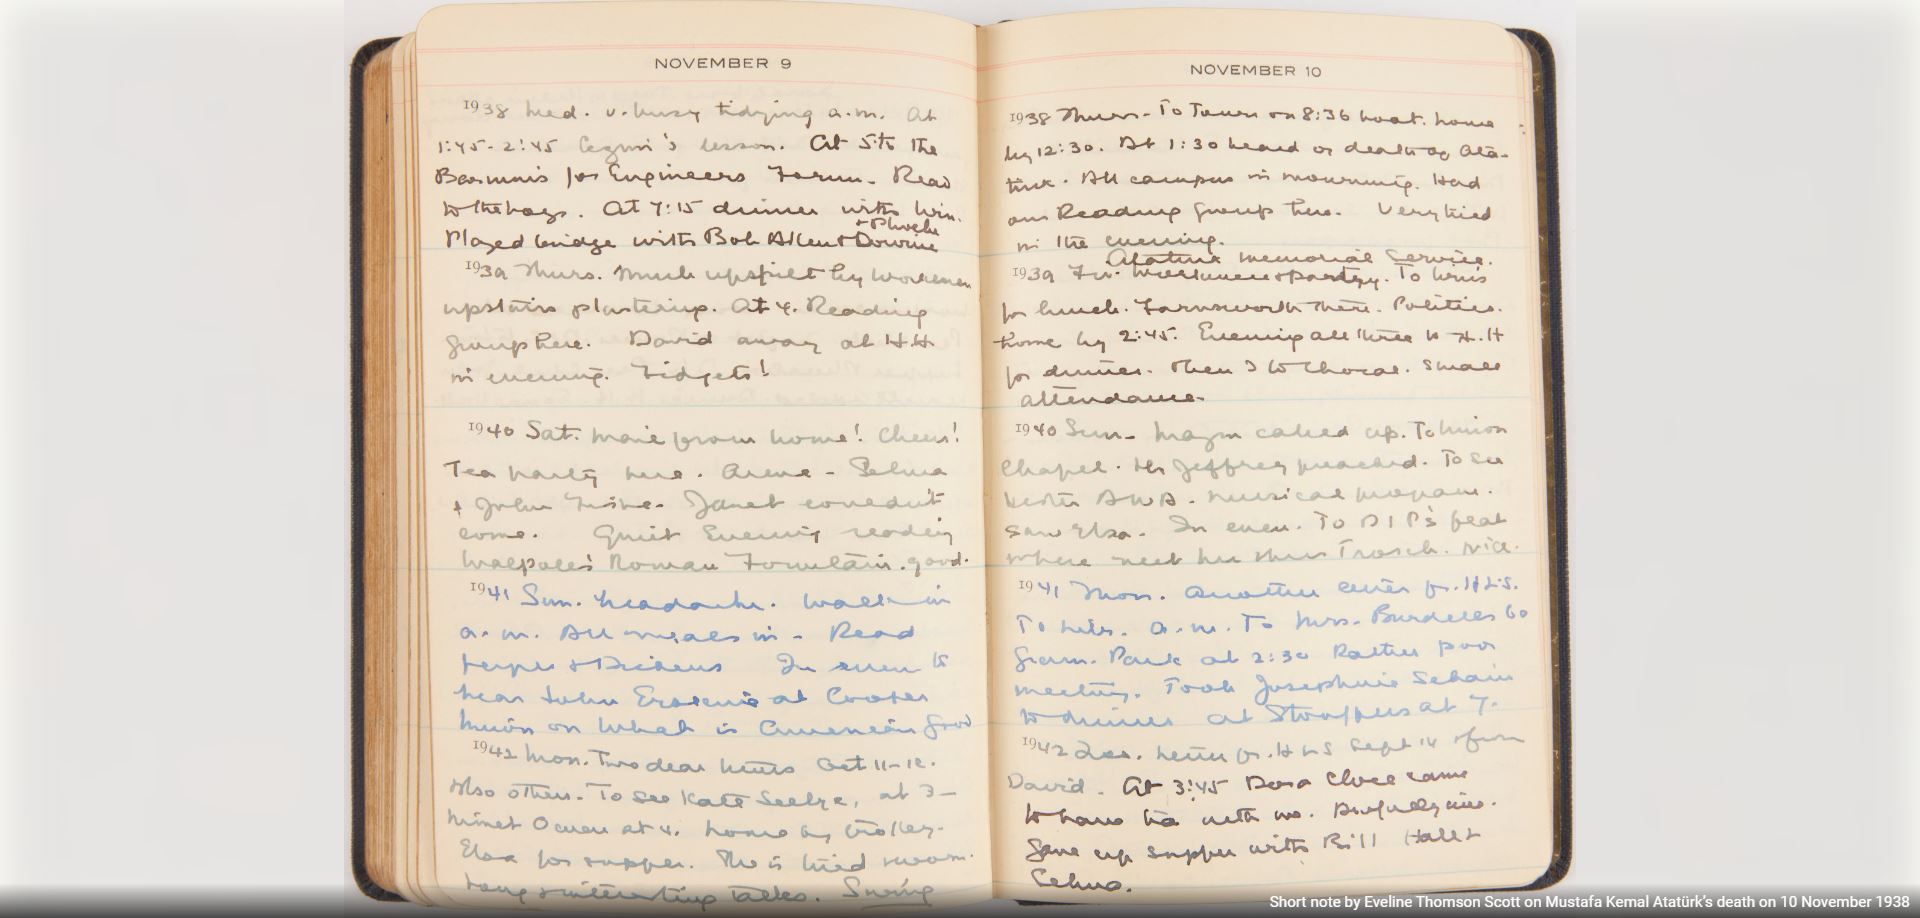 NOVEMBER 9
1938 Wed. v. busy tidying a.m. At
1:45-2:45 lesson. At 5 to the
for Engineers Forum. Read
to the boys. At 7:15 dinner with Win.
+ Phoebe
Played bridge with Bob Allen +
1939 Thurs. Much upset by workmen
upstairs plastering. At 4. Reading
group here. David away at H.H.
in evening. Fidgets!
1940 Sat. Mail from home! Cheers!
Tea party here. - Selma
+ John Janet couldn't
come. Quiet Evening reading
Walpole's Roman Fountain. good.
1941 Sun. headache. Walk in
a.m. All meals in - Read
paper + Dickens In even to
hear John Erskine at Cooper
Union on What is American
1942 Mon. Two dear letters Oct 11-12.
Also others. To see Kate Seelye, at 3-
at 4. home by trolley.
Elsa for supper. She is tired
Long + interesting talks.
NOVEMBER 10
1938 Thurs. To Town on 8:36 boat. home
by 12:30. At 1:30 heard of death of Ata-
türk. All campus in mourning. Had
our Reading Group here. Very tired
in the evening.
Atatürk memorial Service.
1939 Fri. To Win's
for lunch. Farnsworth there. Politics.
home by 2:45. Evening all three to H.H
for dinner. Then I to Choral. Small
attendance.
1940 Sun. called up. To Union
Chapel. Mr Jeffrey preached. To see
musical program.
Saw Elsa. In even. To flat
where meet her Miss Trasch. nice.
1941 Mon. Another letter fr. H.L.S.
To a.m. To Mrs. 60
Gram. Park at 2:30 Rather poor
meeting. Took Josephine
to dinner at Stouffers at 7.
1942 Tues. Letter fr. H L S Sept 14 + from
David. At 3:45 Dora came
to have tea with me. Awfully nice.
Gave up supper with Bill Hall +
Selma.
Short note by Eveline Thomson Scott on Mustafa Kemal Atatürk's death on 10 November 1938